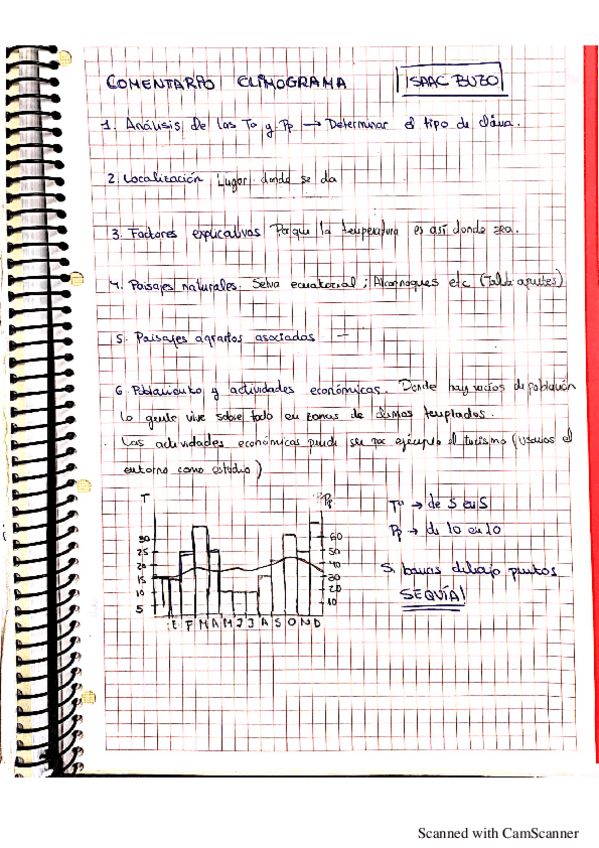 COMENTARIO CLIMOGRAMA ISAAC BUZO
1. Análisis de las Tª y Pp → Determinar el tipo de clima.
2. Localización Lugar donde se da
3. Factores explicativos Porqué la temperatura es así donde sea.
4. Paisajes naturales. Selva ecuatorial; Alcornoques etc (Tabla apuntes)
5. Paisajes agrarios asociados —
6. Poblamiento y actividades económicas. Donde hay vacíos de población
la gente vive sobre todo en zonas de climas templados.
Las actividades económicas puede ser por ejemplo el turismo (usarlos el
entorno como estudio)
T Pp
30 60
25 50
20 40
15 30
10 20
5 10
E F M A M J J A S O N D
Tª → de 5 en 5
Pp → de 10 en 10
Si barras debajo puntos
SEQUÍA!
Scanned with CamScanner